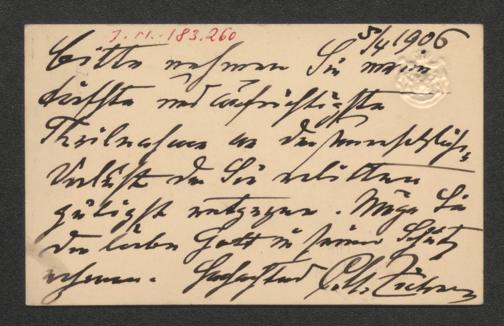 J.N.-183.260
5/4 1906
Bitte nehmen Sie meine
tiefste und aufrichtigste
Theilnahme an der
Verlust den Sie erlitten
gütigst entgegen. Möge Sie
der liebe Gott in seinen Schutz
nehmen.